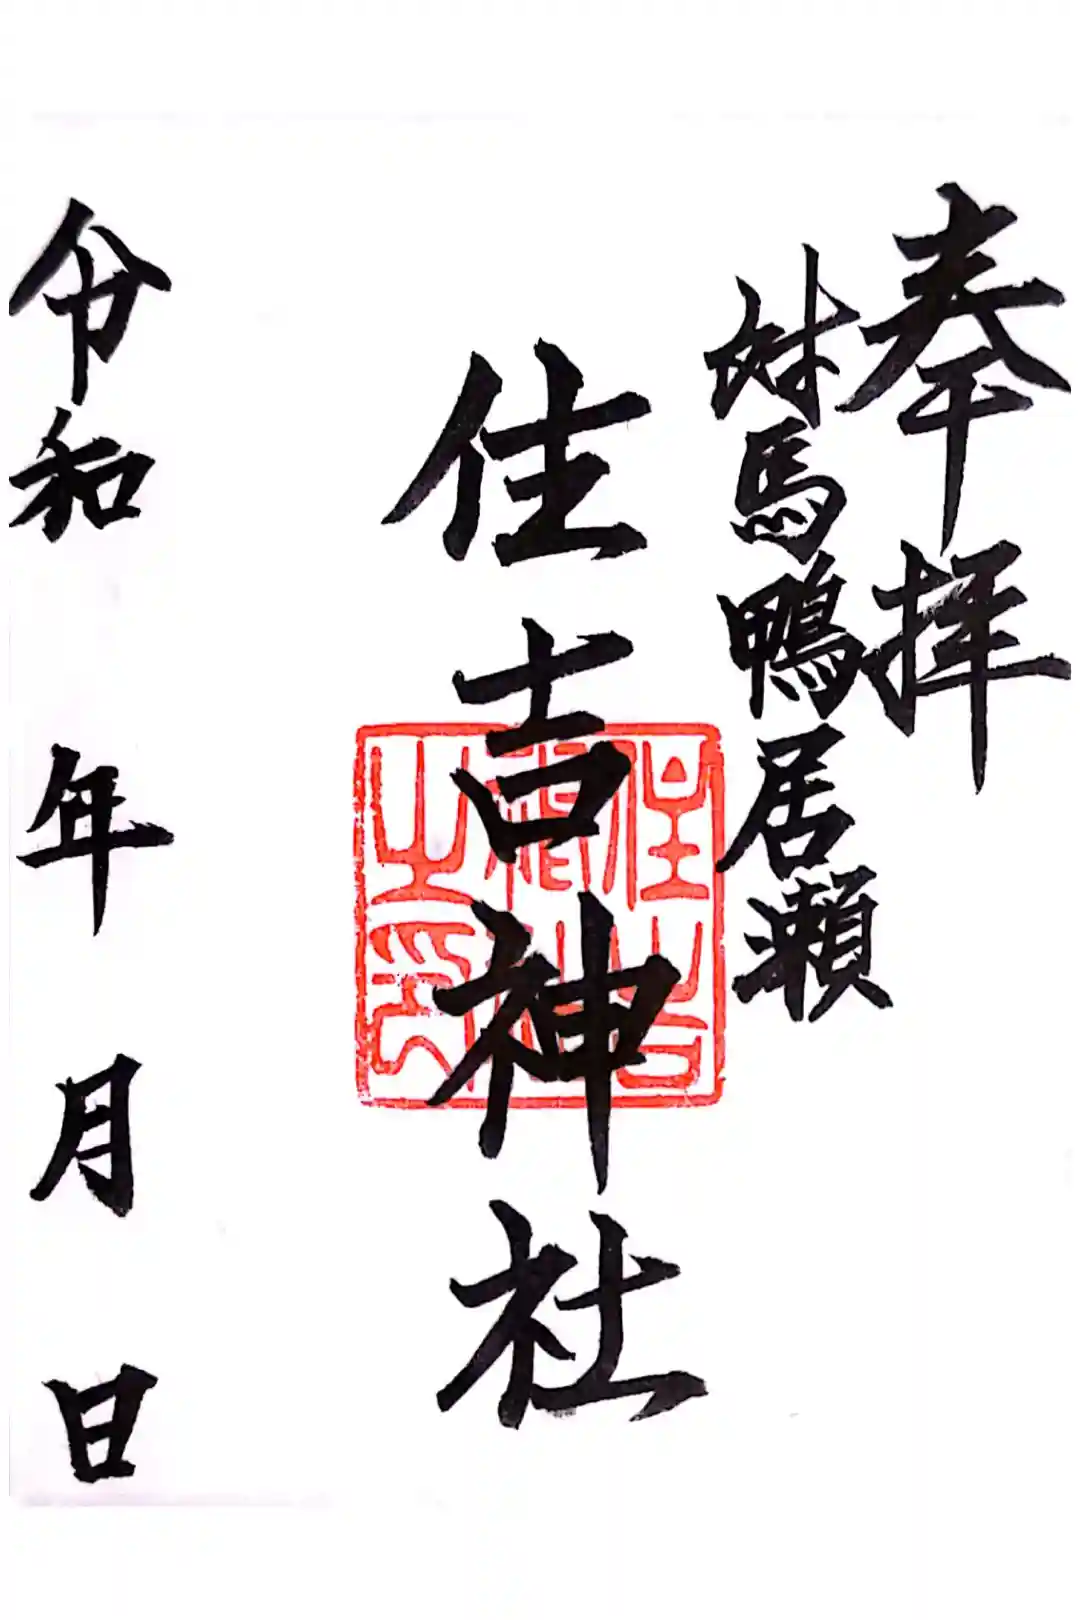 奉拝
対馬鴨居瀬
住吉神社
住吉
神社
之印
令和 年 月 日